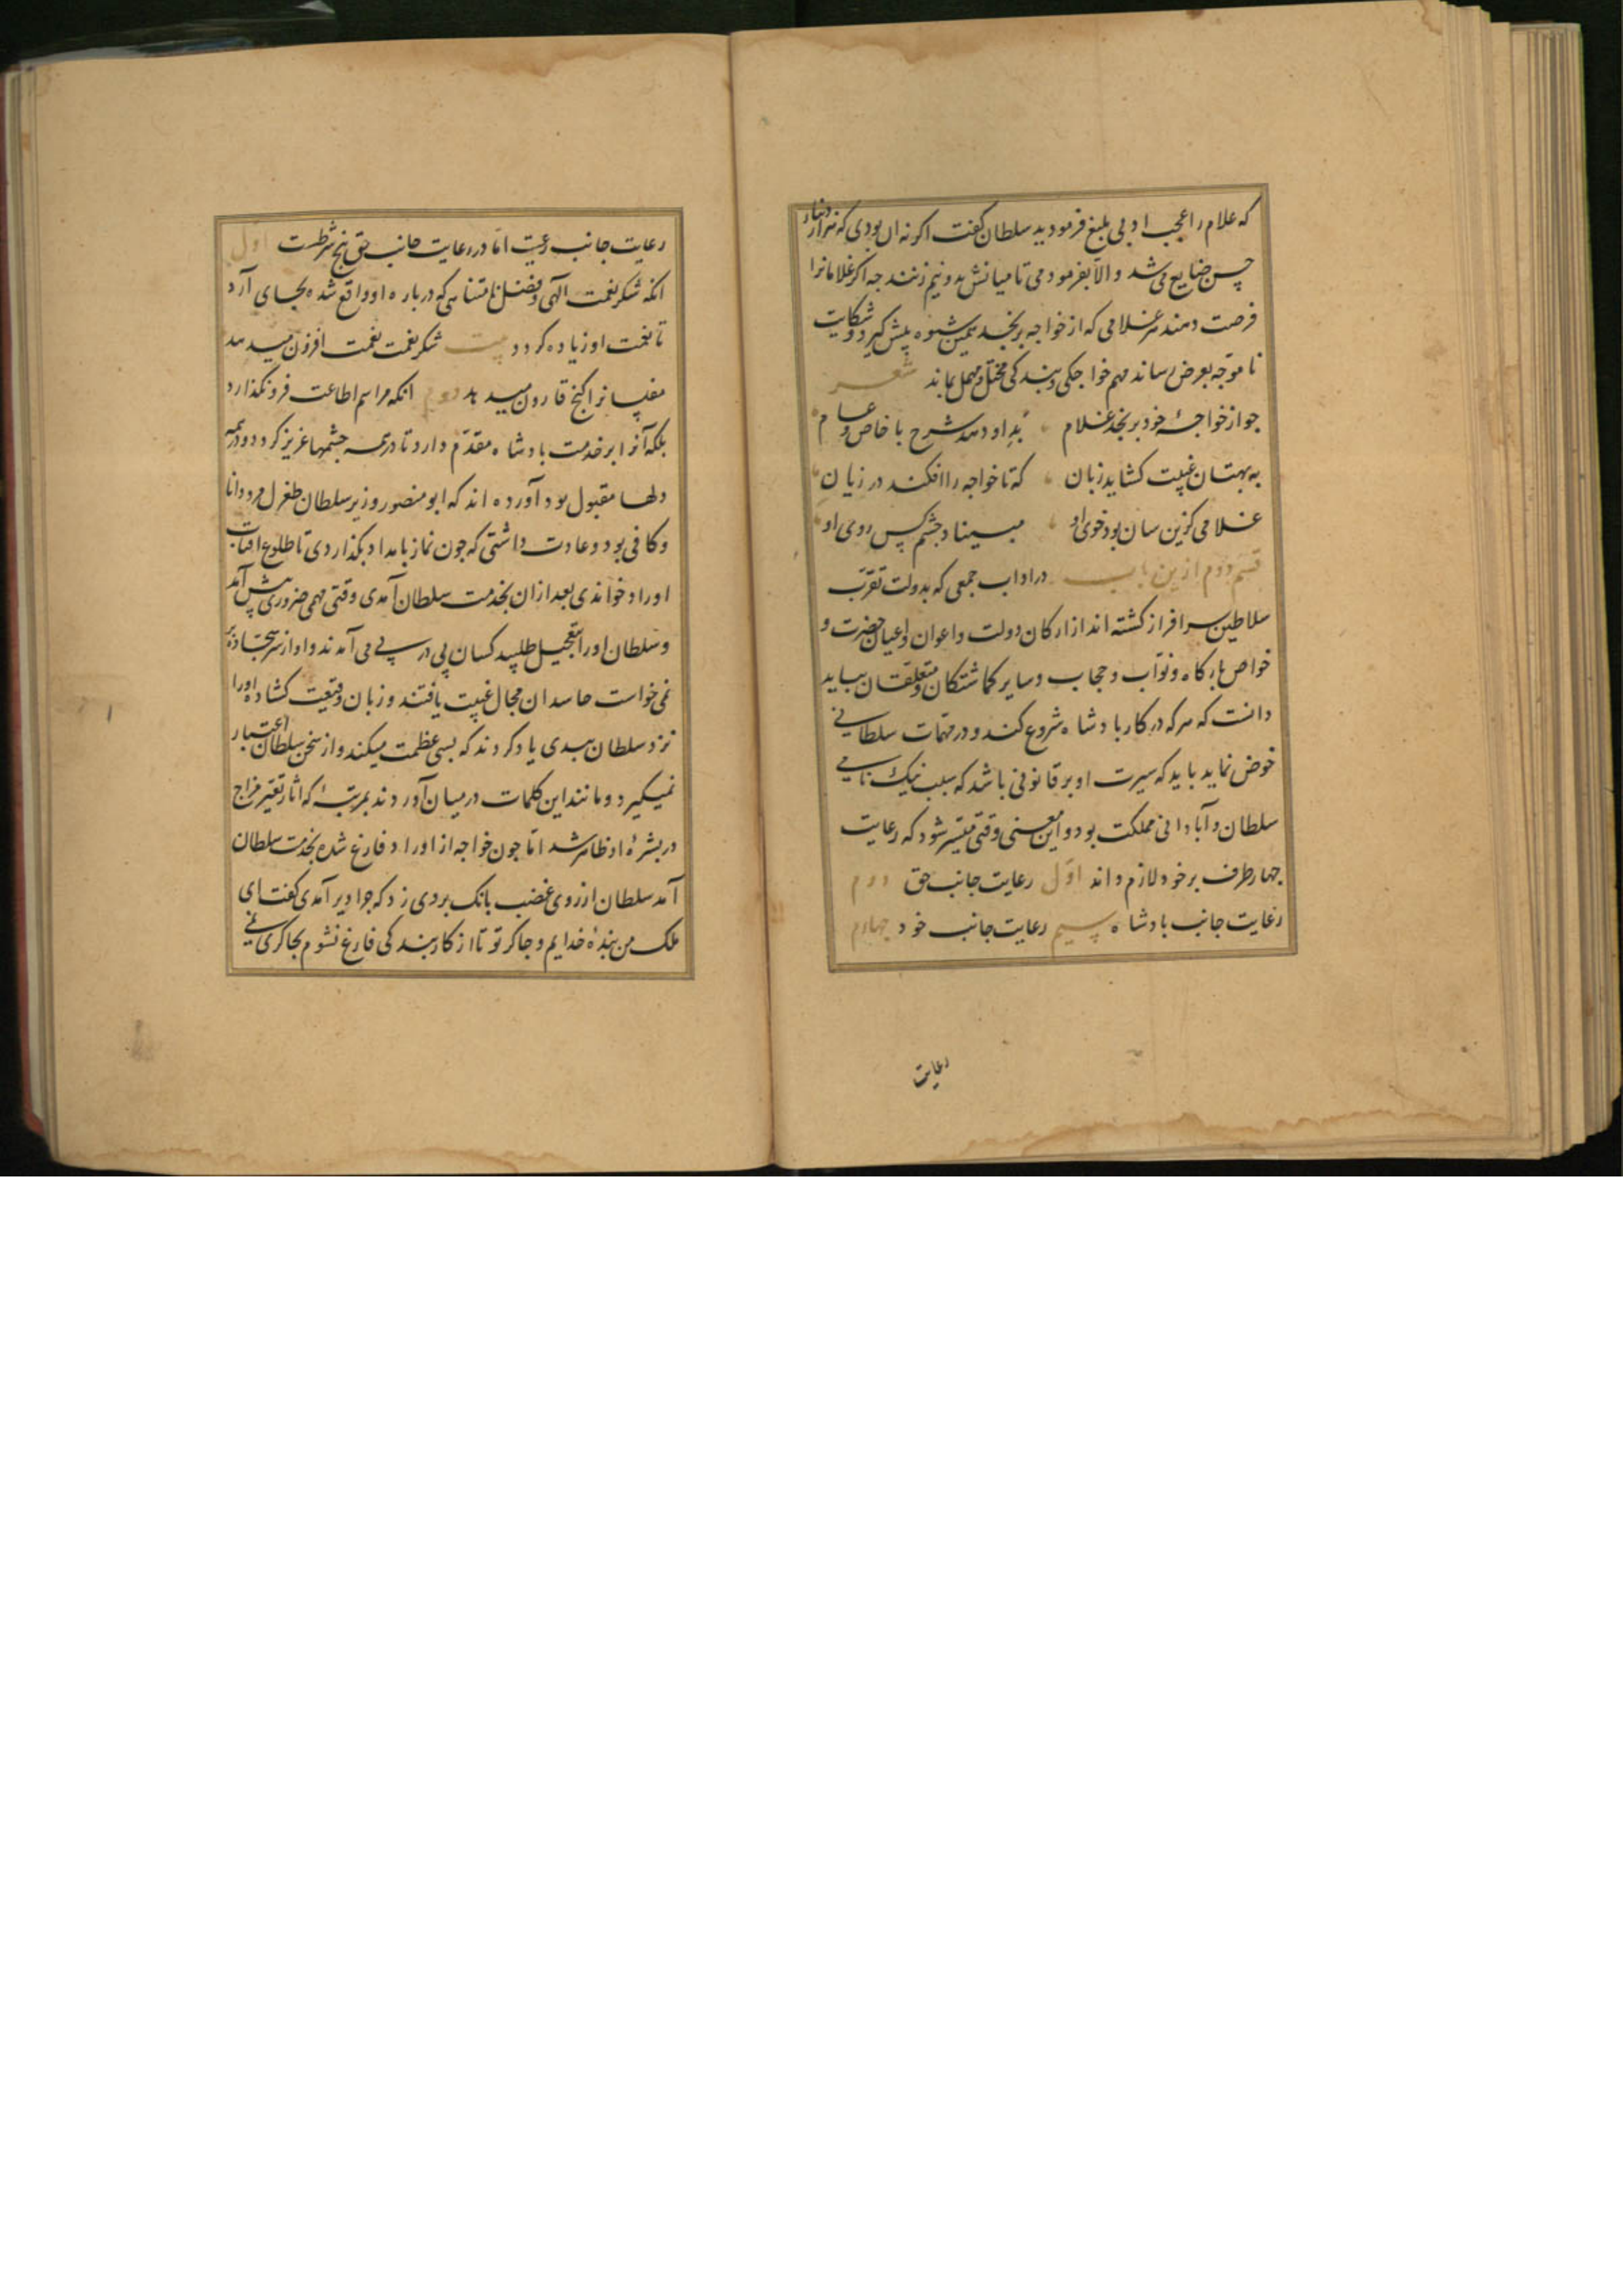 که غلام را عجب ادبی بلیغ فرمودید سلطان گفت اکر نه ان بودی که هزار دینار
جس ضایع می شد والا بفرمودمی تا میانش بدو نیم زنند جه اکر غلامانرا
فرصت دهند هر غلامی که از خواجه برنجد همین شیوه پیش کیرد و شکایت
ناموجه بعرض رساند مهم خواجکی و بندکی مختل و مهمل بماند شعر
جو از خواجۀ خود برنجد غلام بد او دهد شرح با خاص و عام
به بهتان غیبت کشاید زبان که تا خواجه را افکند در زیان
غلامی کزین سان بود خوی او مبیناد جشم کس روی او
قسم دوم ازین باب در اداب جمعی که بدولت تقرب
سلاطین سرافراز کشته اند از ارکان دولت و اعوان و اعیان حضرت و
خواص بارکاه و نواب و حجاب و سایر کماشتکان و متعلقان بباید
دانست که هر که در کار بادشاه شروع کند و در مهمات سلطانی
خوض نماید باید که سیرت او بر قانونی باشد که سبب نیک نامی
سلطان و آبادانی مملکت بود و این معنی وقتی میسر شود که رعایت
جهار طرف بر خود لازم داند اول رعایت جانب حق دوم
رعایت جانب بادشاه سیم رعایت جانب خود جهارم
رعایت
رعایت جانب رعیت اما در رعایت جانب حق پنج شرطست اول
انکه شکر نعمت الهی و فضل نامتناهی که در باره او واقع شده بجای آرد
تا نعمت او زیاده کردد بیت شکر نعمت نعمت افزون میدهد
مفلسانرا کنج قارون میدهد دوم انکه مراسم اطاعت فرونکذارد
بلکه آنرا بر خدمت بادشاه مقدم دارد تا در همه جشمها عزیز کردد و در همه
دلها مقبول بود آورده اند که ابو منصور وزیر سلطان طغرل مرد دانا
و کافی بود و عادت داشتی که جون نماز بامداد بکذاردی تا طلوع افتاب
اوراد خواندی بعد ازان بخدمت سلطان آمدی وقتی مهمی ضروری پیش آمد
و سلطان اورا بتعجیل طلبید کسان پی در پی می آمدند و او از سر سجاده بر
نمی خواست حاسدان مجال غیبت یافتند و زبان وقیعت کشاده اورا
نزد سلطان ببدی یاد کردند که بسی عظمت میکند و از سخن سلطان اعتبار
نمیکیرد و مانند این کلمات در میان آوردند بمرتبۀ که اثار تغیر مزاج
در بشرۀ او ظاهر شد اما جون خواجه از اوراد فارغ شده بخدمت سلطان
آمد سلطان از روی غضب بانک بروی زد که جرا دیر آمدی گفت ای
ملک من بندۀ خدایم و جاکر تو تا از کار بندکی فارغ نشوم بجاکری نمی